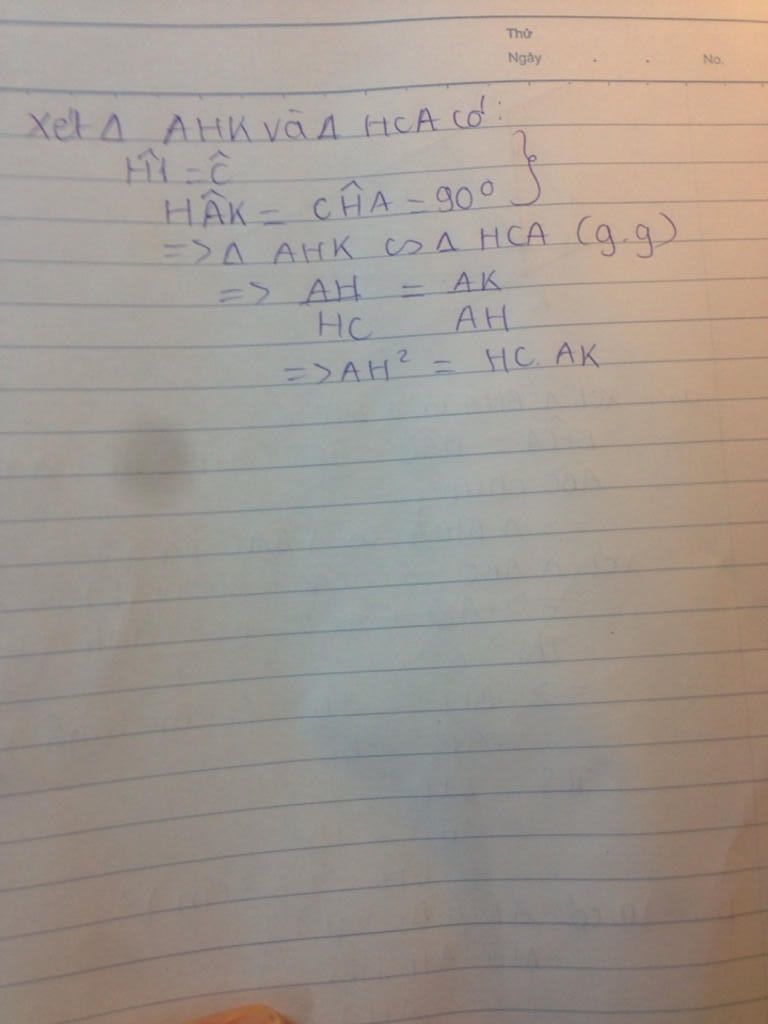 Thứ
Ngày . . No.
Xét Δ AHK và Δ HCA có:
Ĥ1 = Ĉ
HÂK = CĤA = 90°
=> Δ AHK ∽ Δ HCA (g.g)
=> AH = AK
HC AH
=> AH² = HC. AK